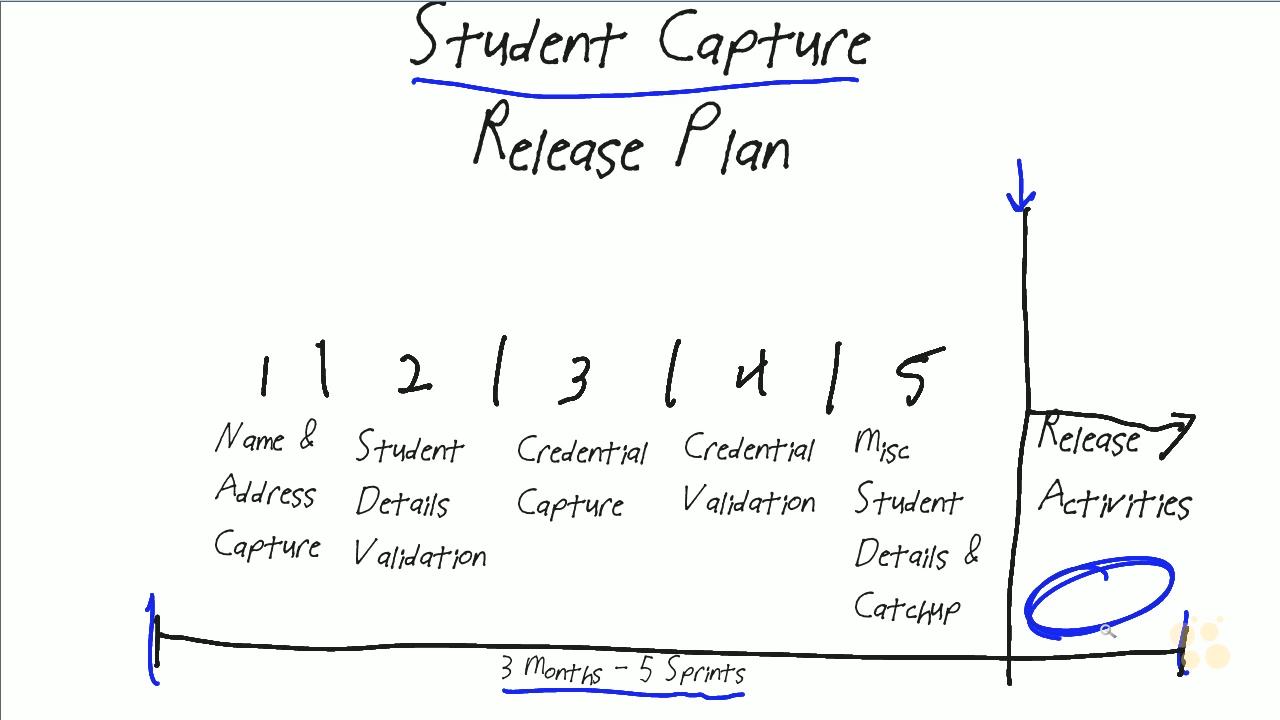 Student Capture
Release Plan
1 | 2 | 3 | 4 | 5
Name &
Address
Capture
Student
Details
Validation
Credential
Capture
Credential
Validation
Misc
Student
Details &
Catchup
Release
Activities
3 Months - 5 Sprints